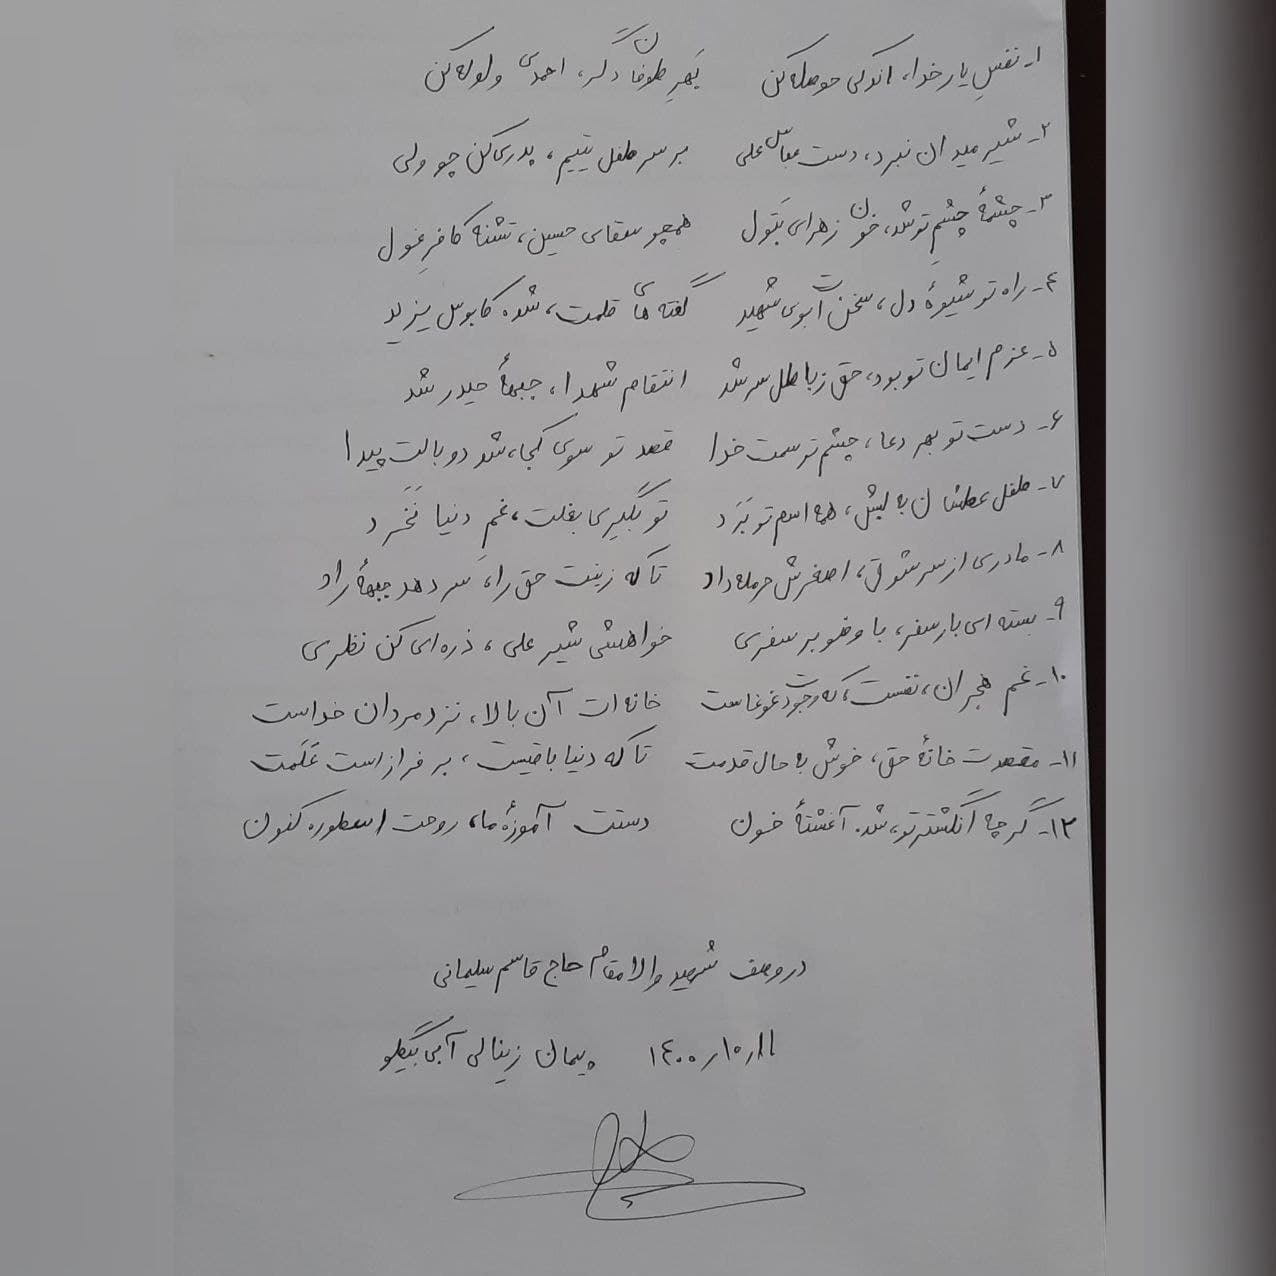 ۱- نفسِ یار خدا، اندکی حوصله کن بَهرِ طوفان دگر، احمدی ولوله کن
۲- شیر میدان نبرد، دست عباس علی بر سر طفل یتیم، پدری کن چو ولی
۳- چشمهٔ چشمِ تو شد، خون زهرای بَتول همچو سقای حسین، تشنه کافرِ غول
۴- راه تو شیوهٔ دل، سخنت آبوی شهید گفته های قلمت، شده کابوس یزید
۵- عزم ایمان تو بود، حق ز باطل سر شد انتقام شهدا، جبههٔ حیدر شد
۶- دست تو بهر دعا، چشم تو سمت خدا قصد تو سوی کجا، شد دو بالت پیدا
۷- طفل عطشان به لبش، همه اسم تو بَرَد تو بگیری بغلت، غمِ دنیا نَخَرد
۸- مادری از سر شوق، اصغرش حرمله داد تا که زینت حق را، سَر دهد جبههٔ راد
۹- بسته ای بار سفر، با وضو بر سفری خواهشی شیر علی، ذره ای کن نظری
۱۰- غم هجران، نفست، که وجودت غوغاست خانه ات آن بالا، نزد مردان خداست
۱۱- مقصدت خانهٔ حق، خوش به حال قدمت تا که دنیا باقیست، بر فراز است عَلَمت
۱۲- گرچه انگشتر تو، شد آغشتهٔ خون دستت آموزهٔ ما، روحت اسطوره کنون
در وصف شهید والا مقام حاج قاسم سلیمانی
۱۴۰۰/۱۰/۱۱ پیمان زینالی آبی بیگلو